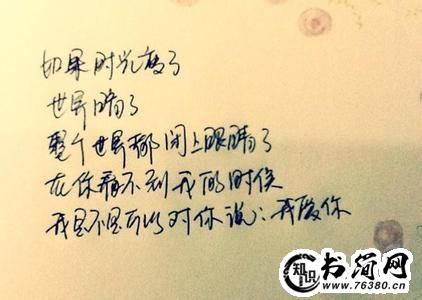 如果时光瘦了
世界暗了
整个世界都闭上眼睛了
在你看不到我的时候
我是不是可以对你说：我爱你
知识
书简网
www.76380.cn